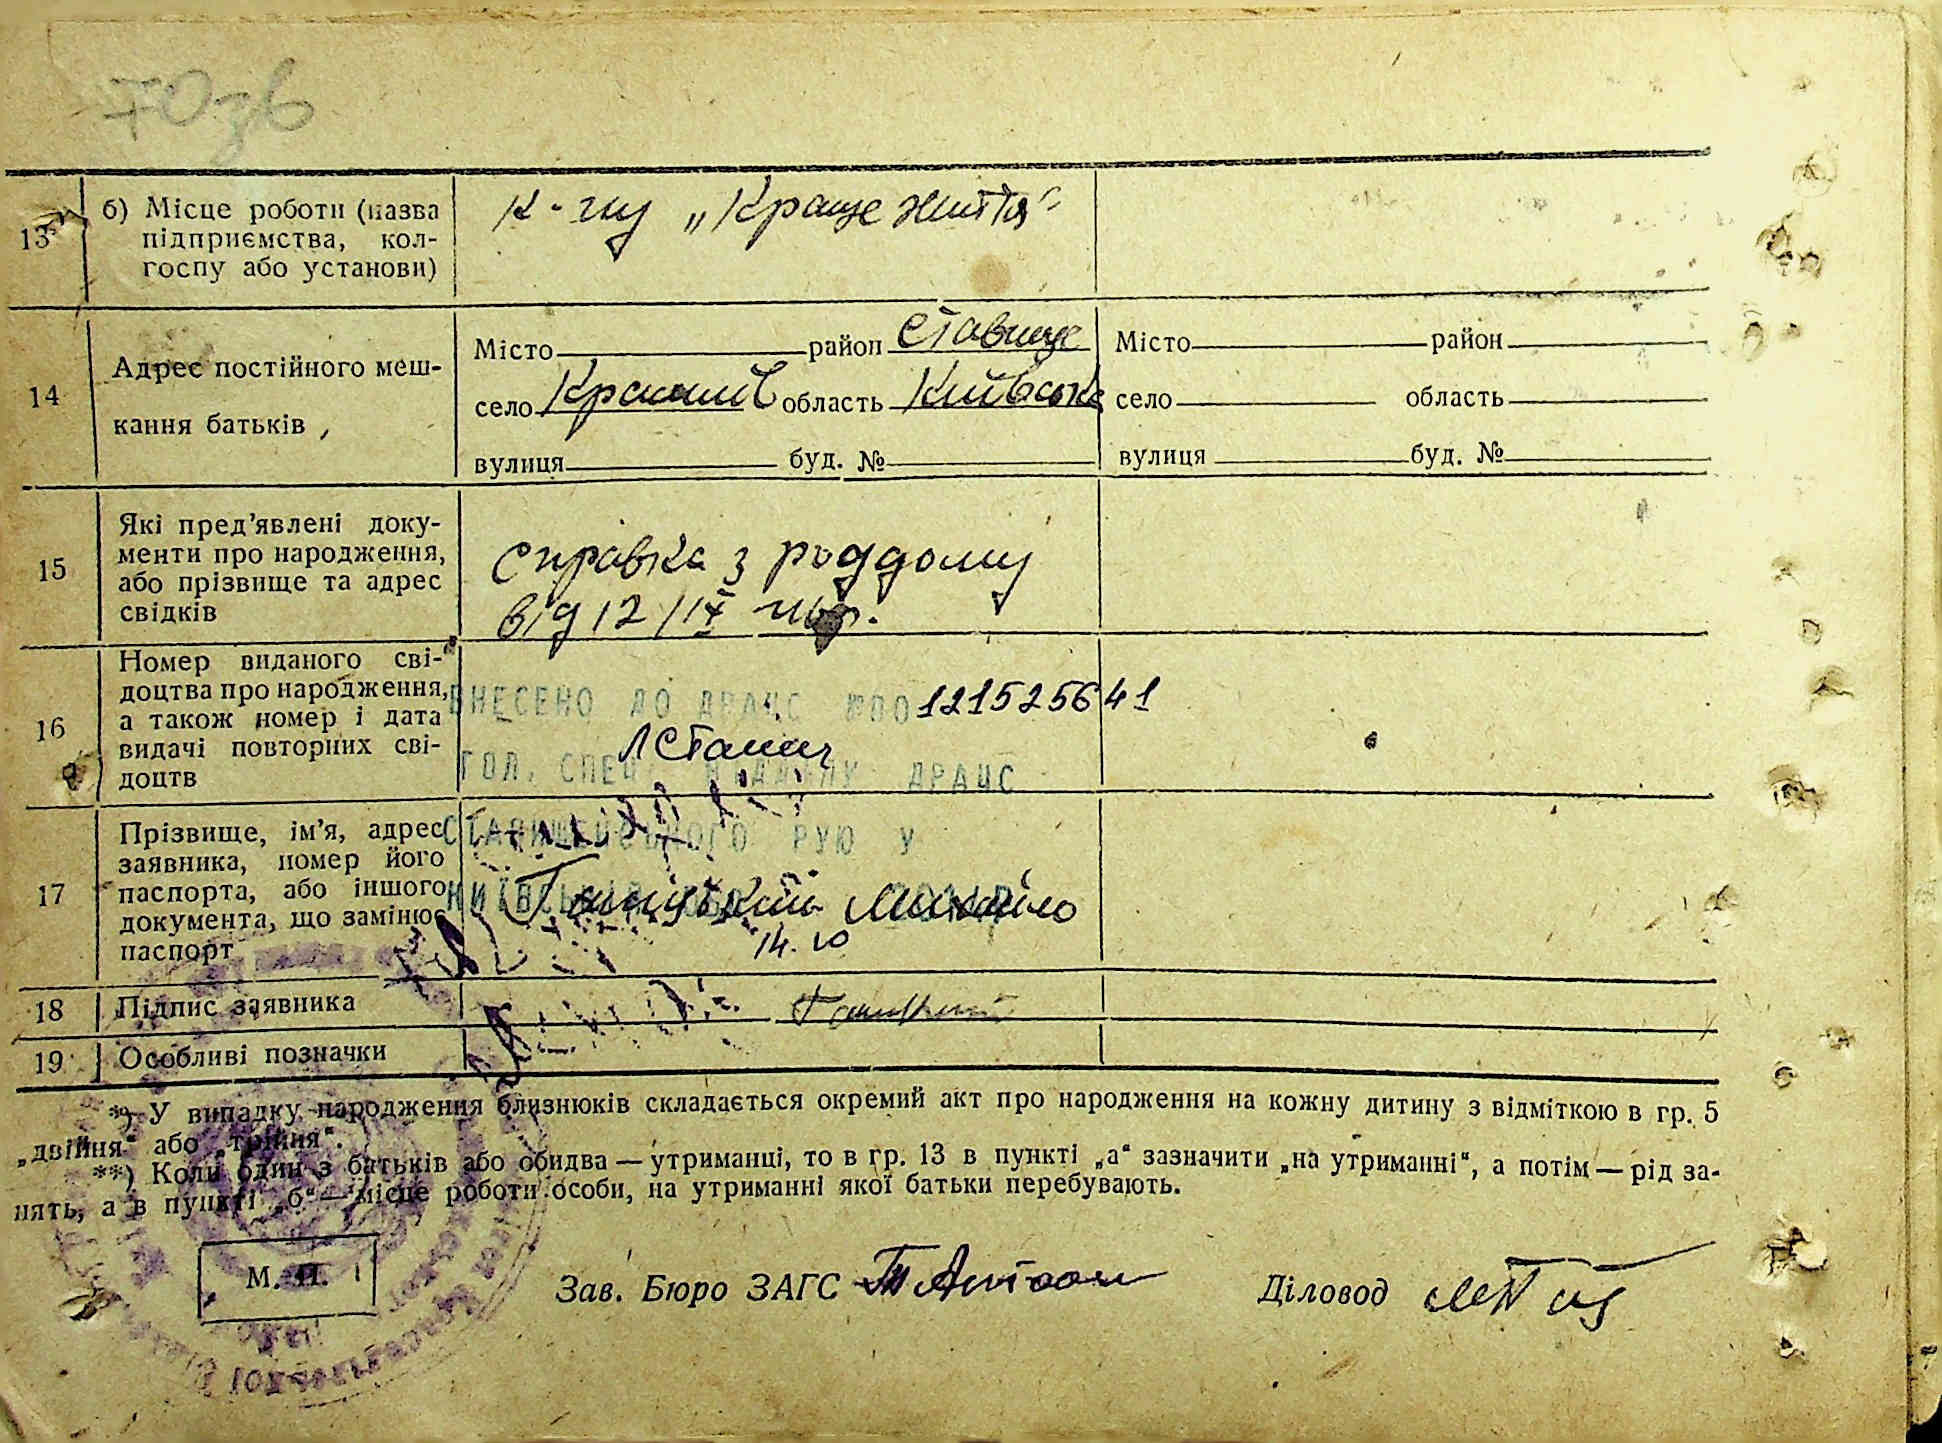 70зв
13
б) Місце роботи (назва
підприємства, кол-
госпу або установи)
к-гу „Краще життя"
14
Адрес постійного меш-
кання батьків
Місто район Ставище
село область Київська
вулиця буд. №
Місто район
село область
вулиця буд. №
15
Які пред'явлені доку-
менти про народження,
або прізвище та адрес
свідків
справка з роддому
від 12/IX
16
Номер виданого сві-
доцтва про народження,
а також номер і дата
видачі повторних сві-
доцтв
ВНЕСЕНО ДО ДРАЦС №00121525641
ГОЛ. СПЕЦ. ВІДДІЛУ ДРАЦС
СТАВИЩЕНСЬКОГО РУЮ У
КИЇВСЬКІЙ
17
Прізвище, ім'я, адрес
заявника, номер його
паспорта, або іншого
документа, що замінює
паспорт
Михайло
14. 10
18
Підпис заявника
19
Особливі позначки
*) У випадку народження близнюків складається окремий акт про народження на кожну дитину з відміткою в гр. 5
„двійня" або „трійня".
**) Коли один з батьків або обидва — утриманці, то в гр. 13 в пункті „а" зазначити „на утриманні", а потім — рід за-
нять, а в пункті „б" — місце роботи особи, на утриманні якої батьки перебувають.
М. П.
Зав. Бюро ЗАГС
Діловод